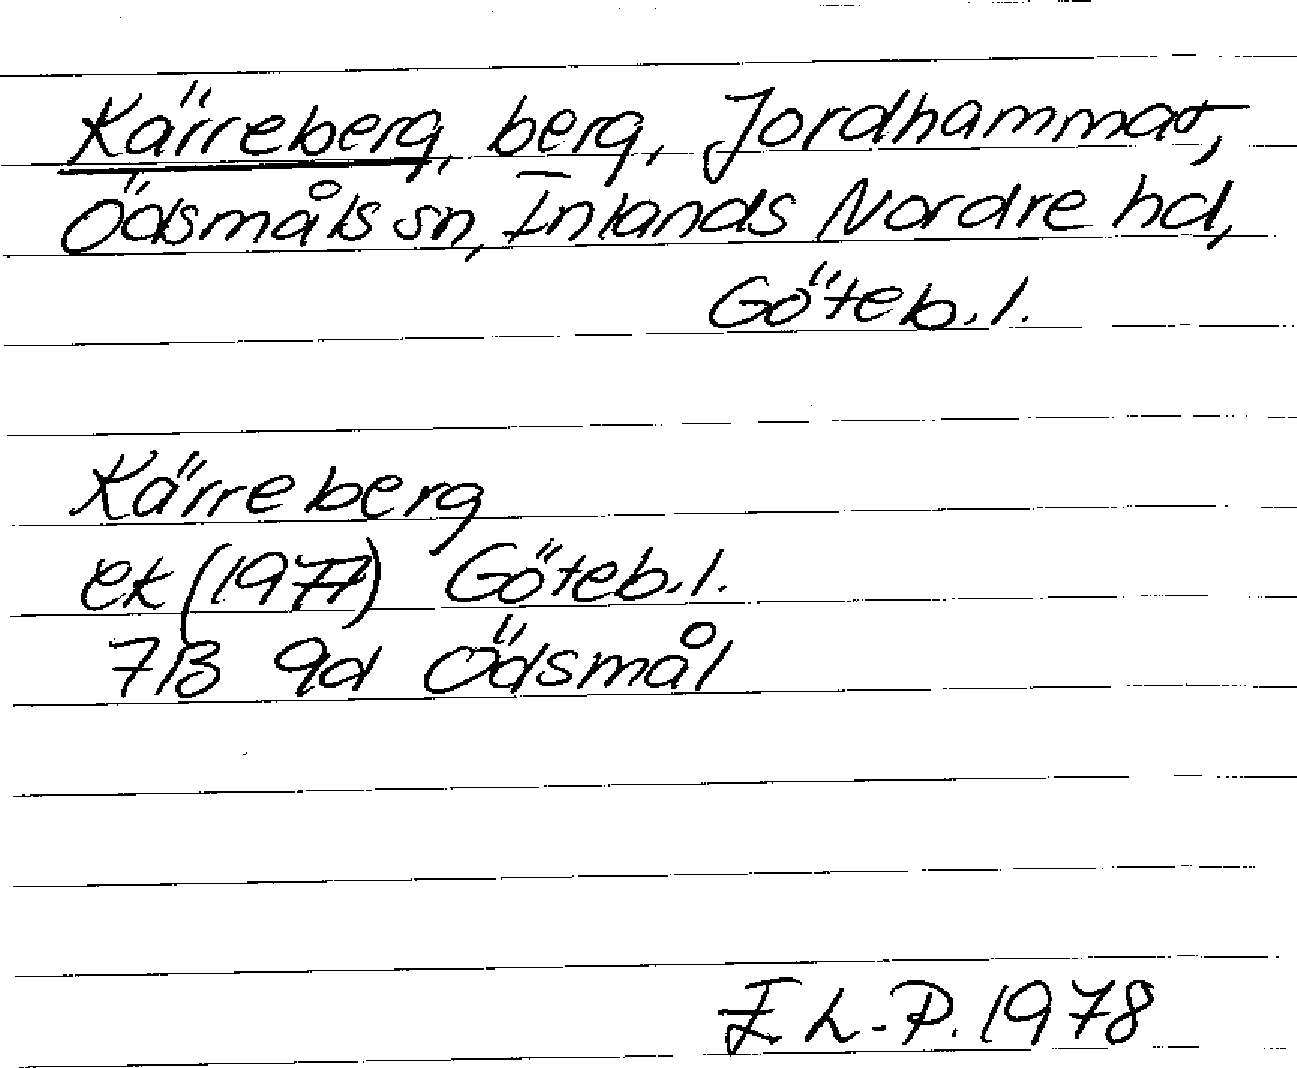 Kärreberg, berg, Jordhammar,
Ödsmåls sn, Inlands Nordre hd,
Göteb. l.
Kärreberg
ek (1977) Göteb. l.
7B 9d Ödsmål
E L-P. 1978